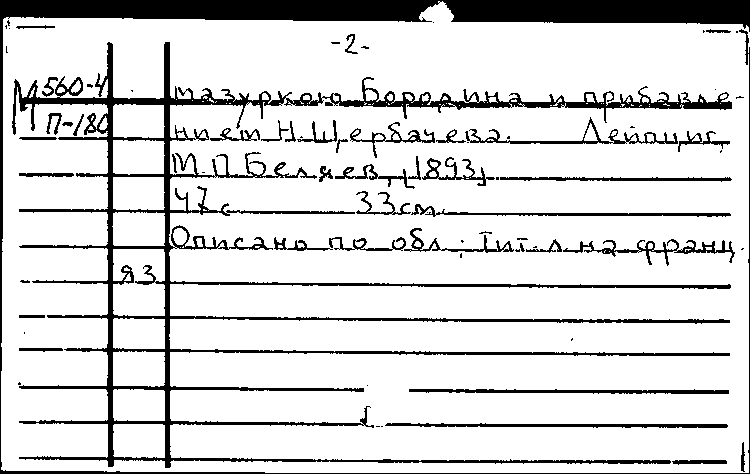 -2-
М 560-4 мазуркою Бородина и прибавле-
П-180 нием Н. Щербачева. Лейпциг,
М.П. Беляев, [1893]
47 с 33 см.
Описано по обл.; Тит. л. на франц.
яз